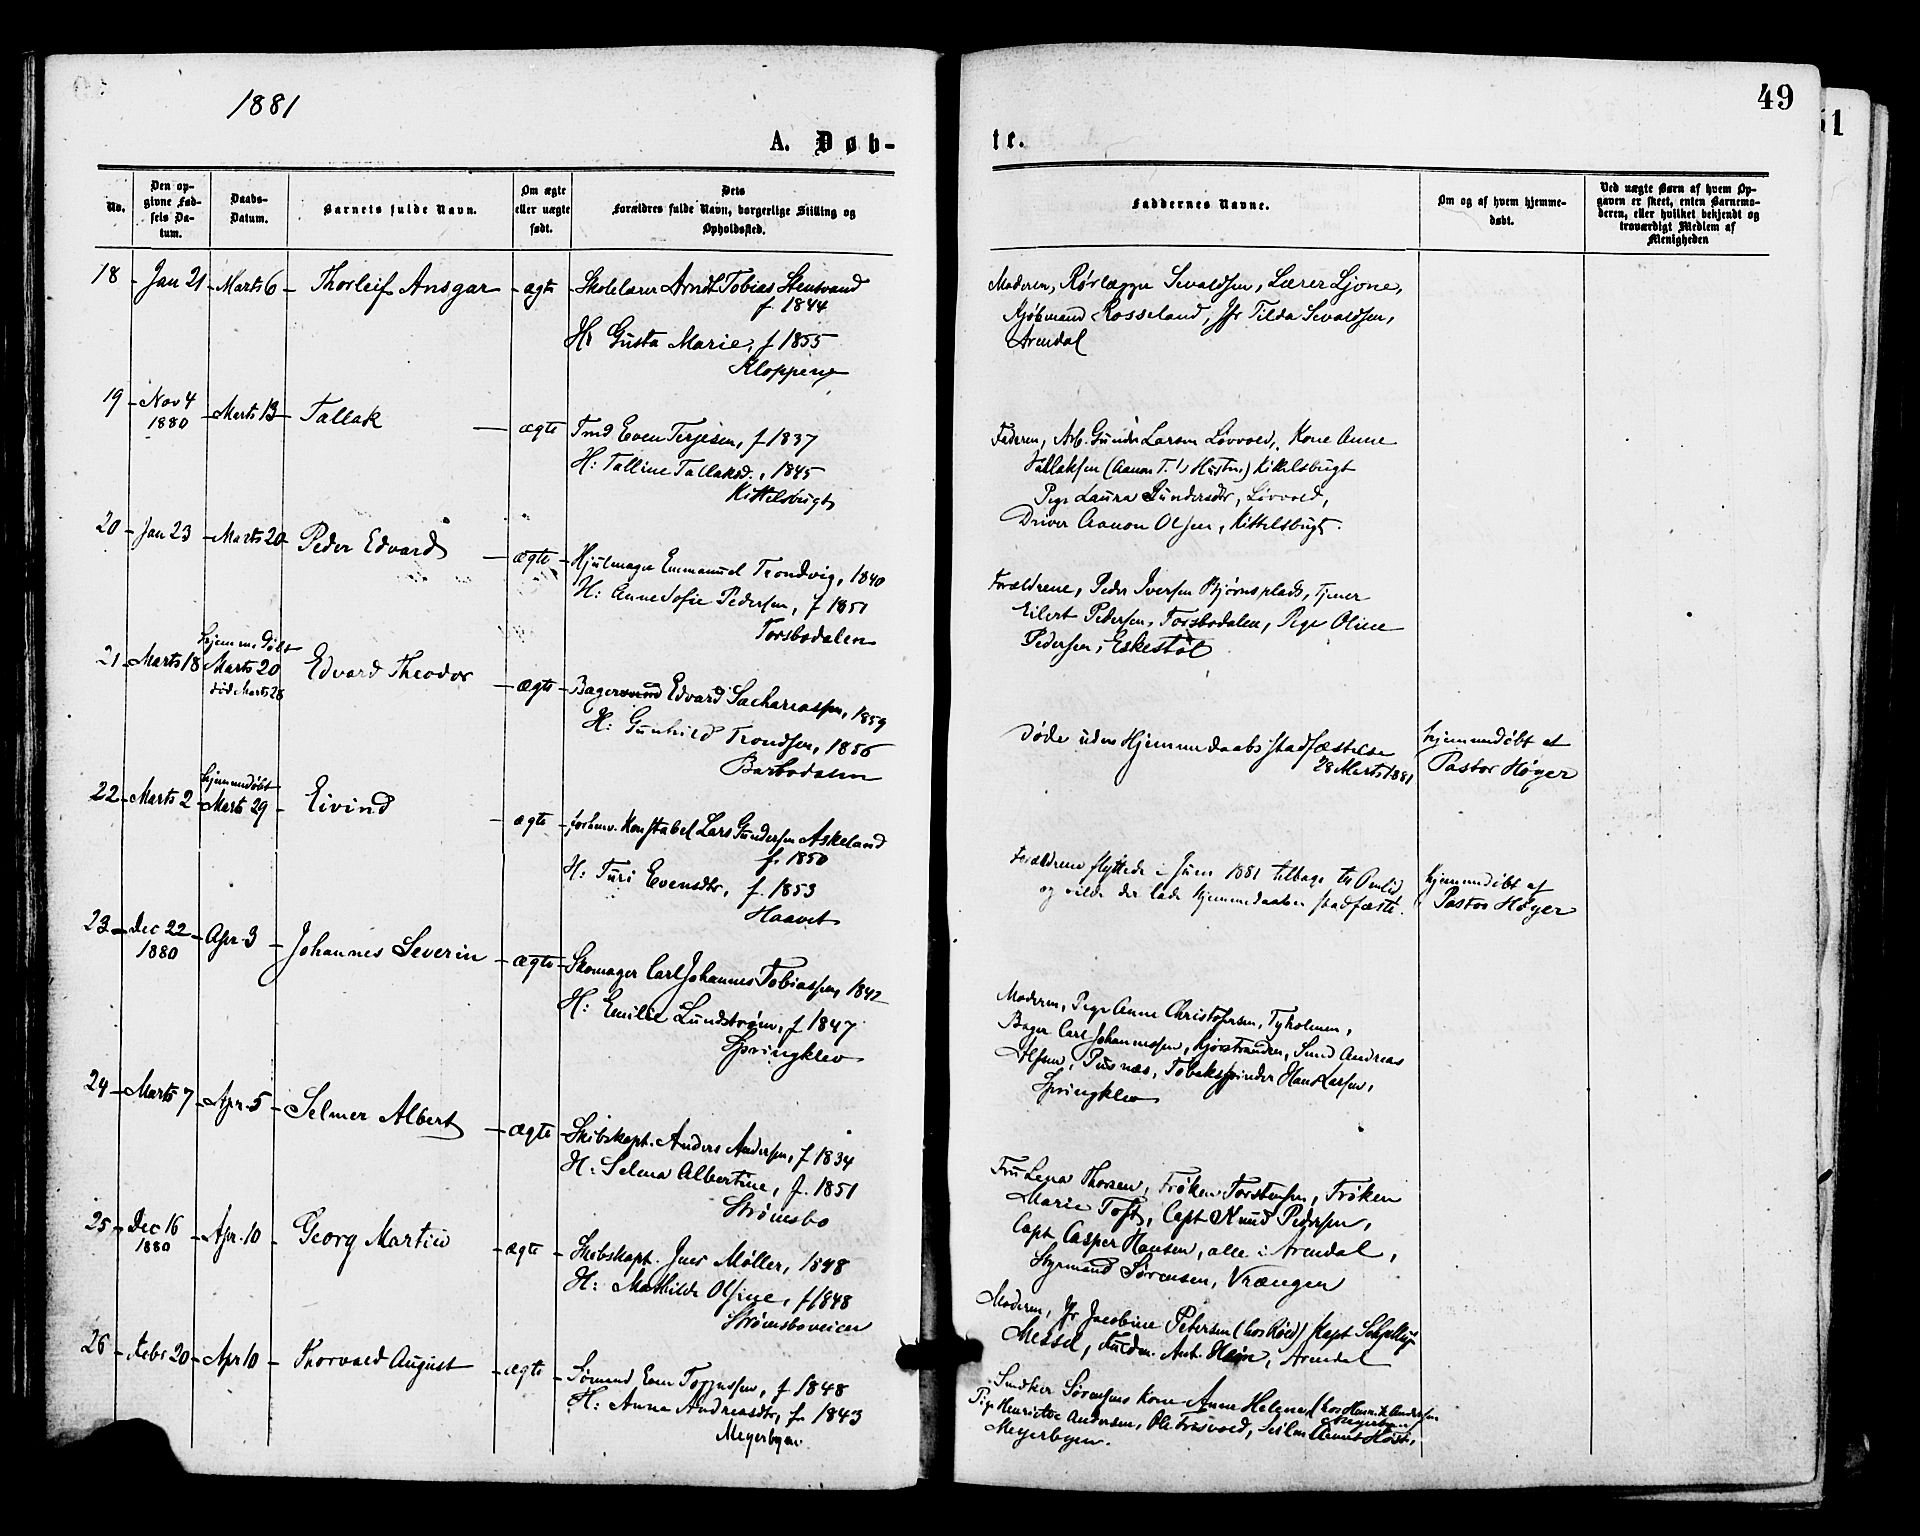 1881
49
51
A. Døb-
te.
No.
Den op-
givne Fød-
sels Da-
tum.
Daabs-
Datum.
Barnets fulde Navn.
Om ægte
eller uægte
født.
Dets
Forældres fulde Navn, borgerlige Stilling og
Opholdssted.
Faddernes Navne.
Om og af hvem hjemme-
døbt.
Ved uægte Børn af hvem Op-
gaven er skeet, enten Barnemo-
deren, eller hvilket bekjendt og
troværdigt Medlem af
Menigheden
18 Jan 21 Marts 6 Thorleif Ansgar ægte Skolelærer Arndt Tobias Stensvand
f. 1844
H: Gusta Marie, f 1855
Kloppene
Moderen, Rørlægger Sevaldsen, Lærer Ljone,
Kjøbmand Rosseland, Jfr Tilda Sevaldsen,
Arendal
19 Nov 4
1880 Marts 13 Tallak ægte Tmd Even Terjesen, f 1837
H: Talline Tallaksd., 1845
Kittelsbugt
Faderen, Arb. Gunder Larsen Løvvold, Kone Anne
Tallaksen (Aanon T.'s Hustru) Kittelsbugt
Pige Laura Gundersdtr, Løvvold,
Driver Aanon Olsen, Kittelsbugt.
20 Jan 23 Marts 20 Peder Edvard ægte Hjulmager Emmanuel Trondvig, 1840
H: Anne Sofie Pedersen, f 1851
Torsbodalen
Forældrene, Peder Iversen Bjørnsplads, Tjener
Eilert Pedersen, Torsbodalen, Pige Oline
Pedersen, Eskestøl
21 Marts 18 hjemmedøbt
Marts 20
død Marts 28 Edvard Theodor ægte Bagersvend Edvard Sachariassen, 1859
H: Gunhild Trondsen, 1856
Barbodalen
Døde uden Hjemmedaabs stadfæstelse
28 Marts 1881
hjemmedøbt af
Pastor Høyer
22 Marts 2 hjemmedøbt
Marts 29 Eivind ægte forhenv. Konstabel Lars Gundersen Askeland
f. 1850
H: Turi Evensdtr, f. 1853
Haavet
Forældrene flyttede i Juni 1881 tilbage til Omlid
og vilde der lade hjemmedaaben stadfæste.
hjemmedøbt af
Pastor Høyer
23 Dec 22
1880 Apr. 3 Johannes Severin ægte Skomager Carl Johannes Tobiassen, 1842
H: Emilie Lundstrøm, f 1847
Springklev
Moderen, Pige Anne Christofersen, Tyholmen,
Bager Carl Johannessen, Smed Andreas
Olsen, Pusnæs, Tobaksspinder Hans Larsen,
Springklev
24 Marts 7 Apr. 5 Selmer Albert ægte Skibskapt. Anders Andersen, f 1834
H: Selma Albertine, f. 1851
Strømsbo
Fru Lena Thorsen, Frøken Torstensen, Frøken
Marie Toft, Capt Knud Pedersen,
Capt Casper Hansen, alle i Arendal,
Styrmand Sørensen, Vrængen
25 Dec 16
1880 Apr. 10 Georg Martin ægte Skibskapt. Jens Møller, 1848
H: Mathilde Olsine, f 1848
Strømsboveien
Moderen, Jfr Jacobine Petersen (hos Røed) Kapt
Messel, Fuldm. Ant. Heim, Arendal
26 Febr 20 Apr 10 Thorvald August ægte Sømand Even Torjussen, f 1848
H: Anna Andreasdtr, f. 1843
Meyerbyen
Smedker Sørensens Kone Anne Helene (hos Henrik Andersen
Meyerbyen)
Pige Henriette Andersen, Ole Frisvold,
Meyerbyen.